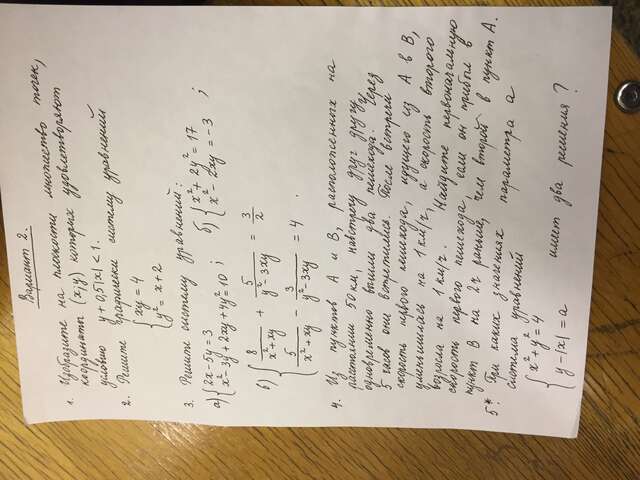 Вариант 2.
1. Изобразите на плоскости множество точек,
координаты (x;y) которых удовлетворяют
условию y + 0,5|x| < 1.
2. Решите графически систему уравнений
{ xy = 4
y² = x + 2
3. Решите систему уравнений:
а) { 2x - 5y = 3
x² - 3y + 2xy + 4y² = 10 ;
б) { x² + 2y² = 17
x² - 2xy = -3 ;
в) { 8/(x² + xy) + 5/(y² - 3xy) = 3/2
5/(x² + xy) - 3/(y² - 3xy) = 4 .
4. Из пунктов А и В, расположенных на
расстоянии 50 км, навстречу друг другу
одновременно вышли два пешехода. Через
5 часов они встретились. После встречи
скорость первого пешехода, идущего из А в В,
уменьшилась на 1 км/ч, а скорость второго
возросла на 1 км/ч. Найдите первоначальную
скорость первого пешехода, если он прибыл в
пункт В на 2ч раньше, чем второй в пункт А.
5*. При каких значениях параметра а
система уравнений
{ x² + y² = 4
y - |x| = a имеет два решения?